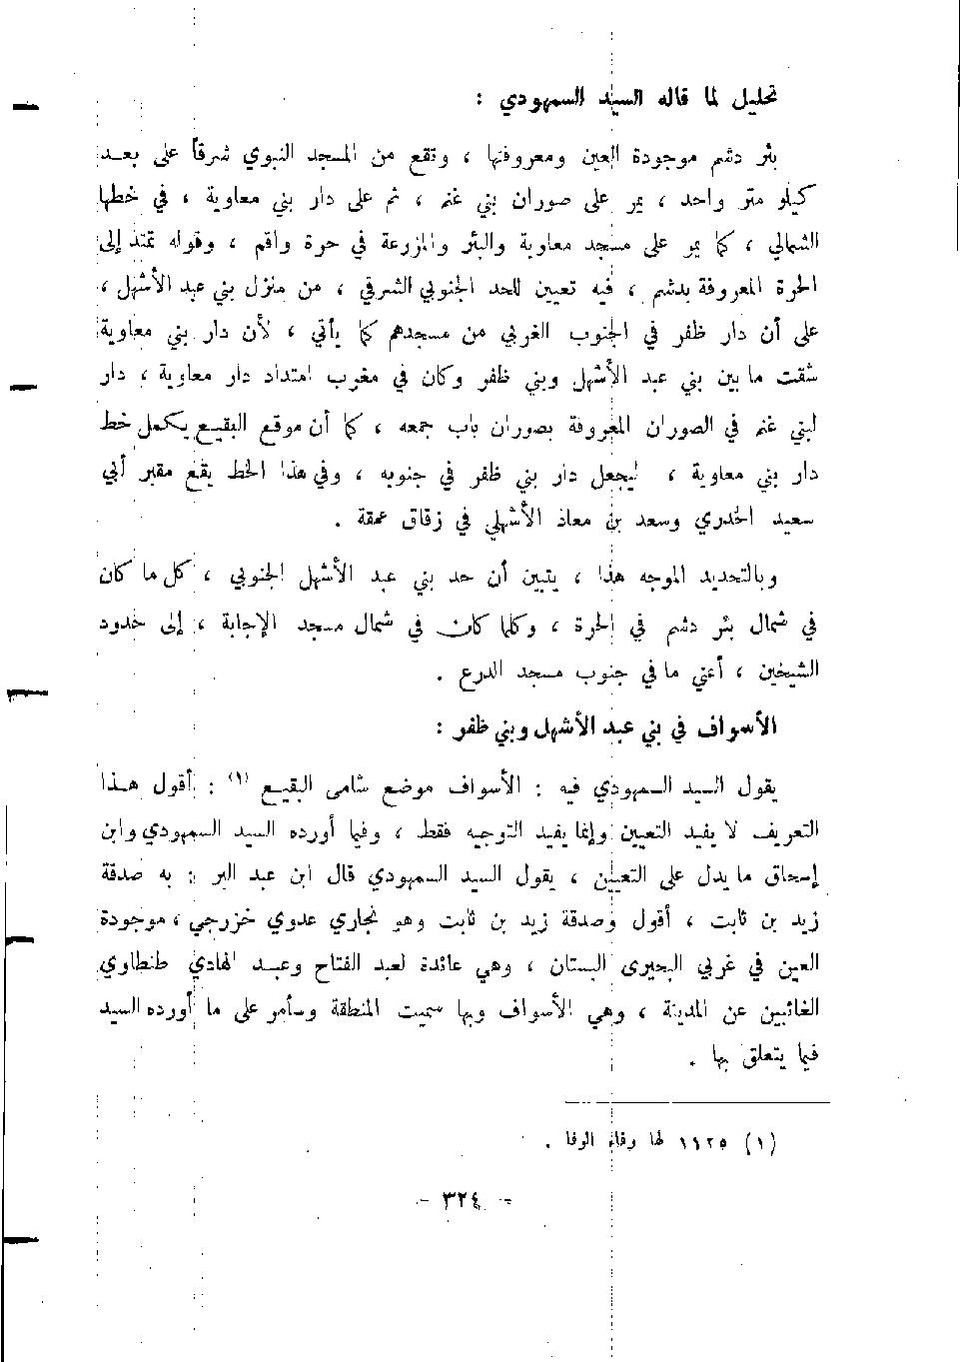 تحليل لما قاله السيد السمهودي :
بئر دشم موجودة العين ومعروفتها ، وتقع من المسجد النبوي شرقاً على بعد
كيلو متر واحد ، يمر على صوران بني غنم ، ثم على دار بني معاوية ، في خطها
الشمالي ، كما يمر على مسجد معاوية والبئر والمزرعة في حرة واقم ، وقوله تمتد إلى
الحرة المعروفة بدشم ، فيه تعيين للحد الجنوبي الشرقي ، من منزل بني عبد الأشهل ،
على أن دار ظفر في الجنوب الغربي من مسجدهم كما يأتي ، لأن دار بني معاوية
شقت ما بين بني عبد الأشهل وبني ظفر وكان في مغرب امتداد دار معاوية ، دار
لبني غنم في الصوران المعروفة بصوران باب جمعه ، كما أن موقع البقيع يكمل خط
دار بني معاوية ، ليجعل دار بني ظفر في جنوبه ، وفي هذا الخط يقع مقبر أبي
سعيد الخدري وسعد بن معاذ الأشهلي في زقاق عمقة .
وبالتحديد الموجه هذا ، يتبين أن حد بني عبد الأشهل الجنوبي ، كل ما كان
في شمال بئر دشم في الحرة ، وكلما كان في شمال مسجد الإجابة ، إلى حدود
الشيخين ، أعني ما في جنوب مسجد الدرع .
الأسواف في بني عبد الأشهل وبني ظفر :
يقول السيد السمهودي فيه : الأسواف موضع شامى البقيع (١) : أقول هذا
التعريف لا يفيد التعيين وإنما يفيد التوجيه فقط ، وفيما أورده السيد السمهودي وابن
إسحاق ما يدل على التعيين ، يقول السيد السمهودي قال ابن عبد البر : به صدقة
زيد بن ثابت ، أقول وصدقة زيد بن ثابت وهو نجاري عدوي خزرجي ، موجودة
العين في غربي البحيرى البستان ، وهي عائدة لعبد الفتاح وعبد الهادي طنطاوي
الغائبين عن المدينة ، وهي الأسواف وبها سميت المنطقة وسأمر على ما أورده السيد
فيما يتعلق بها .
(١) ١١٢٥ لها وفاء الوفا .
- ٣٢٤ -